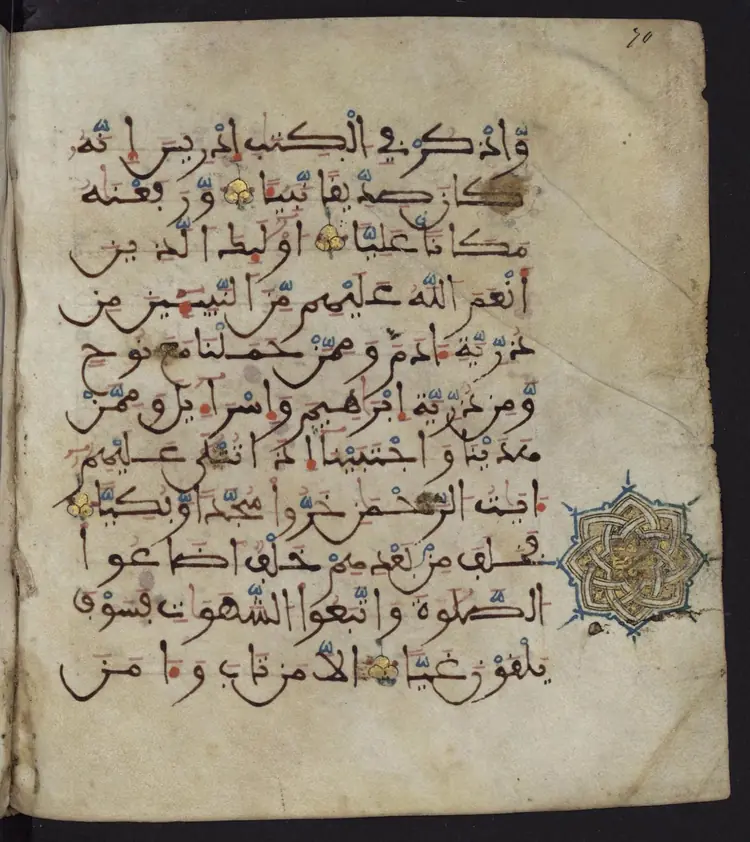 70
وَاذْكُرْ فِي الْكِتَبِ إِدْرِيسَ إِنَّهُ
كَانَ صِدِّيقًا نَّبِيـًٔا وَّرَفَعْنَهُ
مَكَانًا عَلِيًّا أُوْلَئِكَ الَّذِينَ
أَنْعَمَ اللَّهُ عَلَيْهِم مِّنَ النَّبِيـِٕينَ مِن
ذُرِّيَّةِ ءَادَمَ وَمِمَّنْ حَمَلْنَا مَعَ نُوحٍ
وَّمِن ذُرِّيَّةِ إِبْرَاهِيمَ وَإِسْرَاءِيلَ وَمِمَّنْ
هَدَيْنَا وَاجْتَبَيْنَا إِذَا تُتْلَى عَلَيْهِمُ
ءَايَتُ الرَّحْمَنِ خَرُّوا سُجَّدًا وَّبُكِيًّا
فَخَلَفَ مِنْ بَعْدِهِمْ خَلْفٌ أَضَاعُوا
الصَّلَوةَ وَاتَّبَعُوا الشَّهَوَاتِ فَسَوْفَ
يَلْقَوْنَ غَيًّا إِلَّا مَن تَابَ وَءَامَنَ